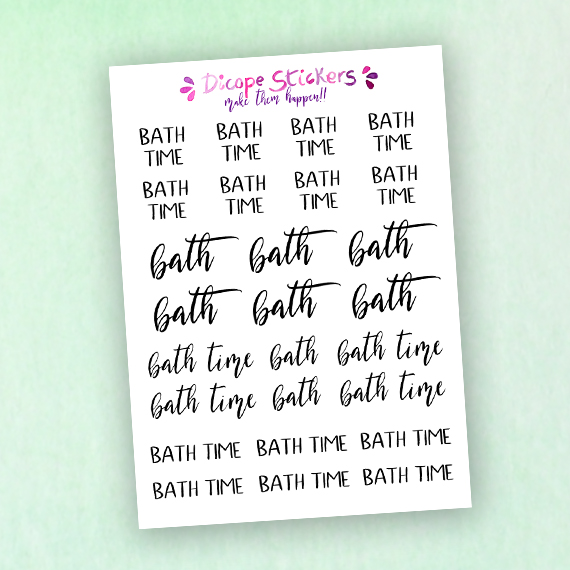 Dicope Stickers
make them happen!!
BATH TIME BATH TIME BATH TIME BATH TIME
BATH TIME BATH TIME BATH TIME BATH TIME
bath bath bath
bath bath bath
bath time bath bath time
bath time bath bath time
BATH TIME BATH TIME BATH TIME
BATH TIME BATH TIME BATH TIME